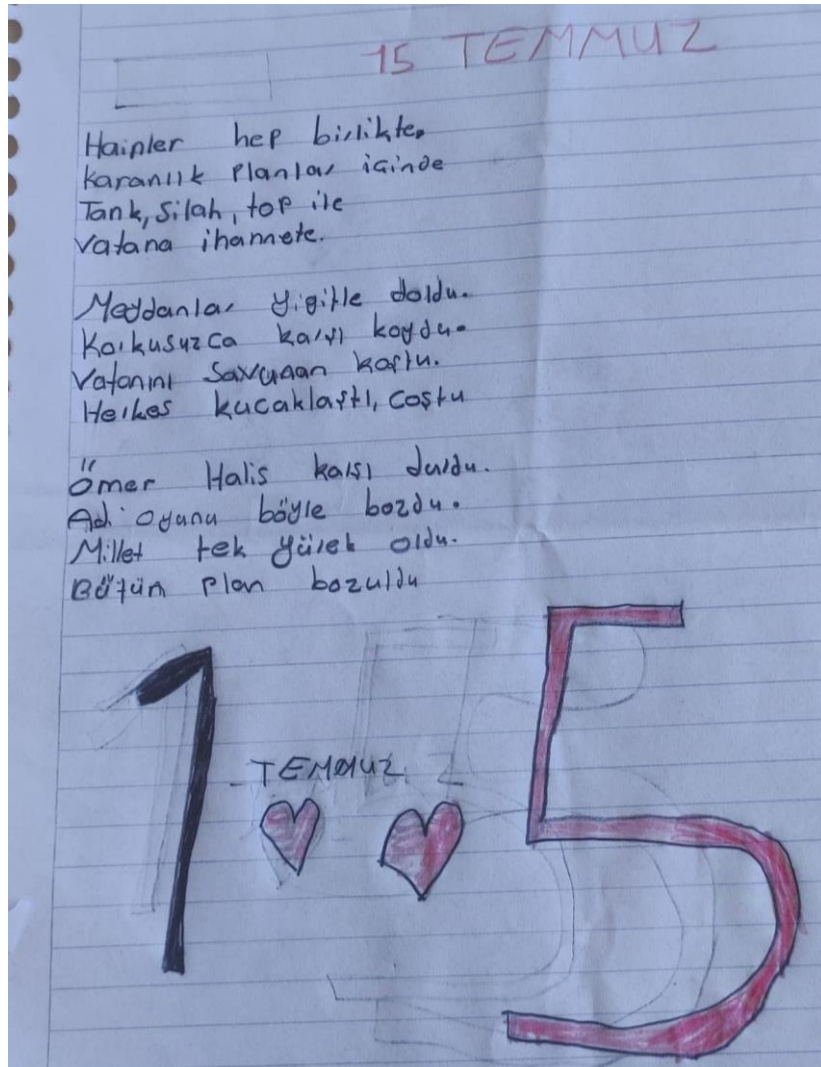 15 TEMMUZ
Hainler hep birlikte,
Karanlık Planlar içinde
Tank, Silah, top ile
Vatana ihanete.
Meydanlar yigitle doldu.
Korkusuzca karşı koydu.
Vatanını Savunan koştu.
Herkes kucaklaştı, coştu
Ömer Halis karsı durdu.
Adi oyunu böyle bozdu.
Millet tek yürek oldu.
Bütün Plan bozuldu
TEMMUZ
15